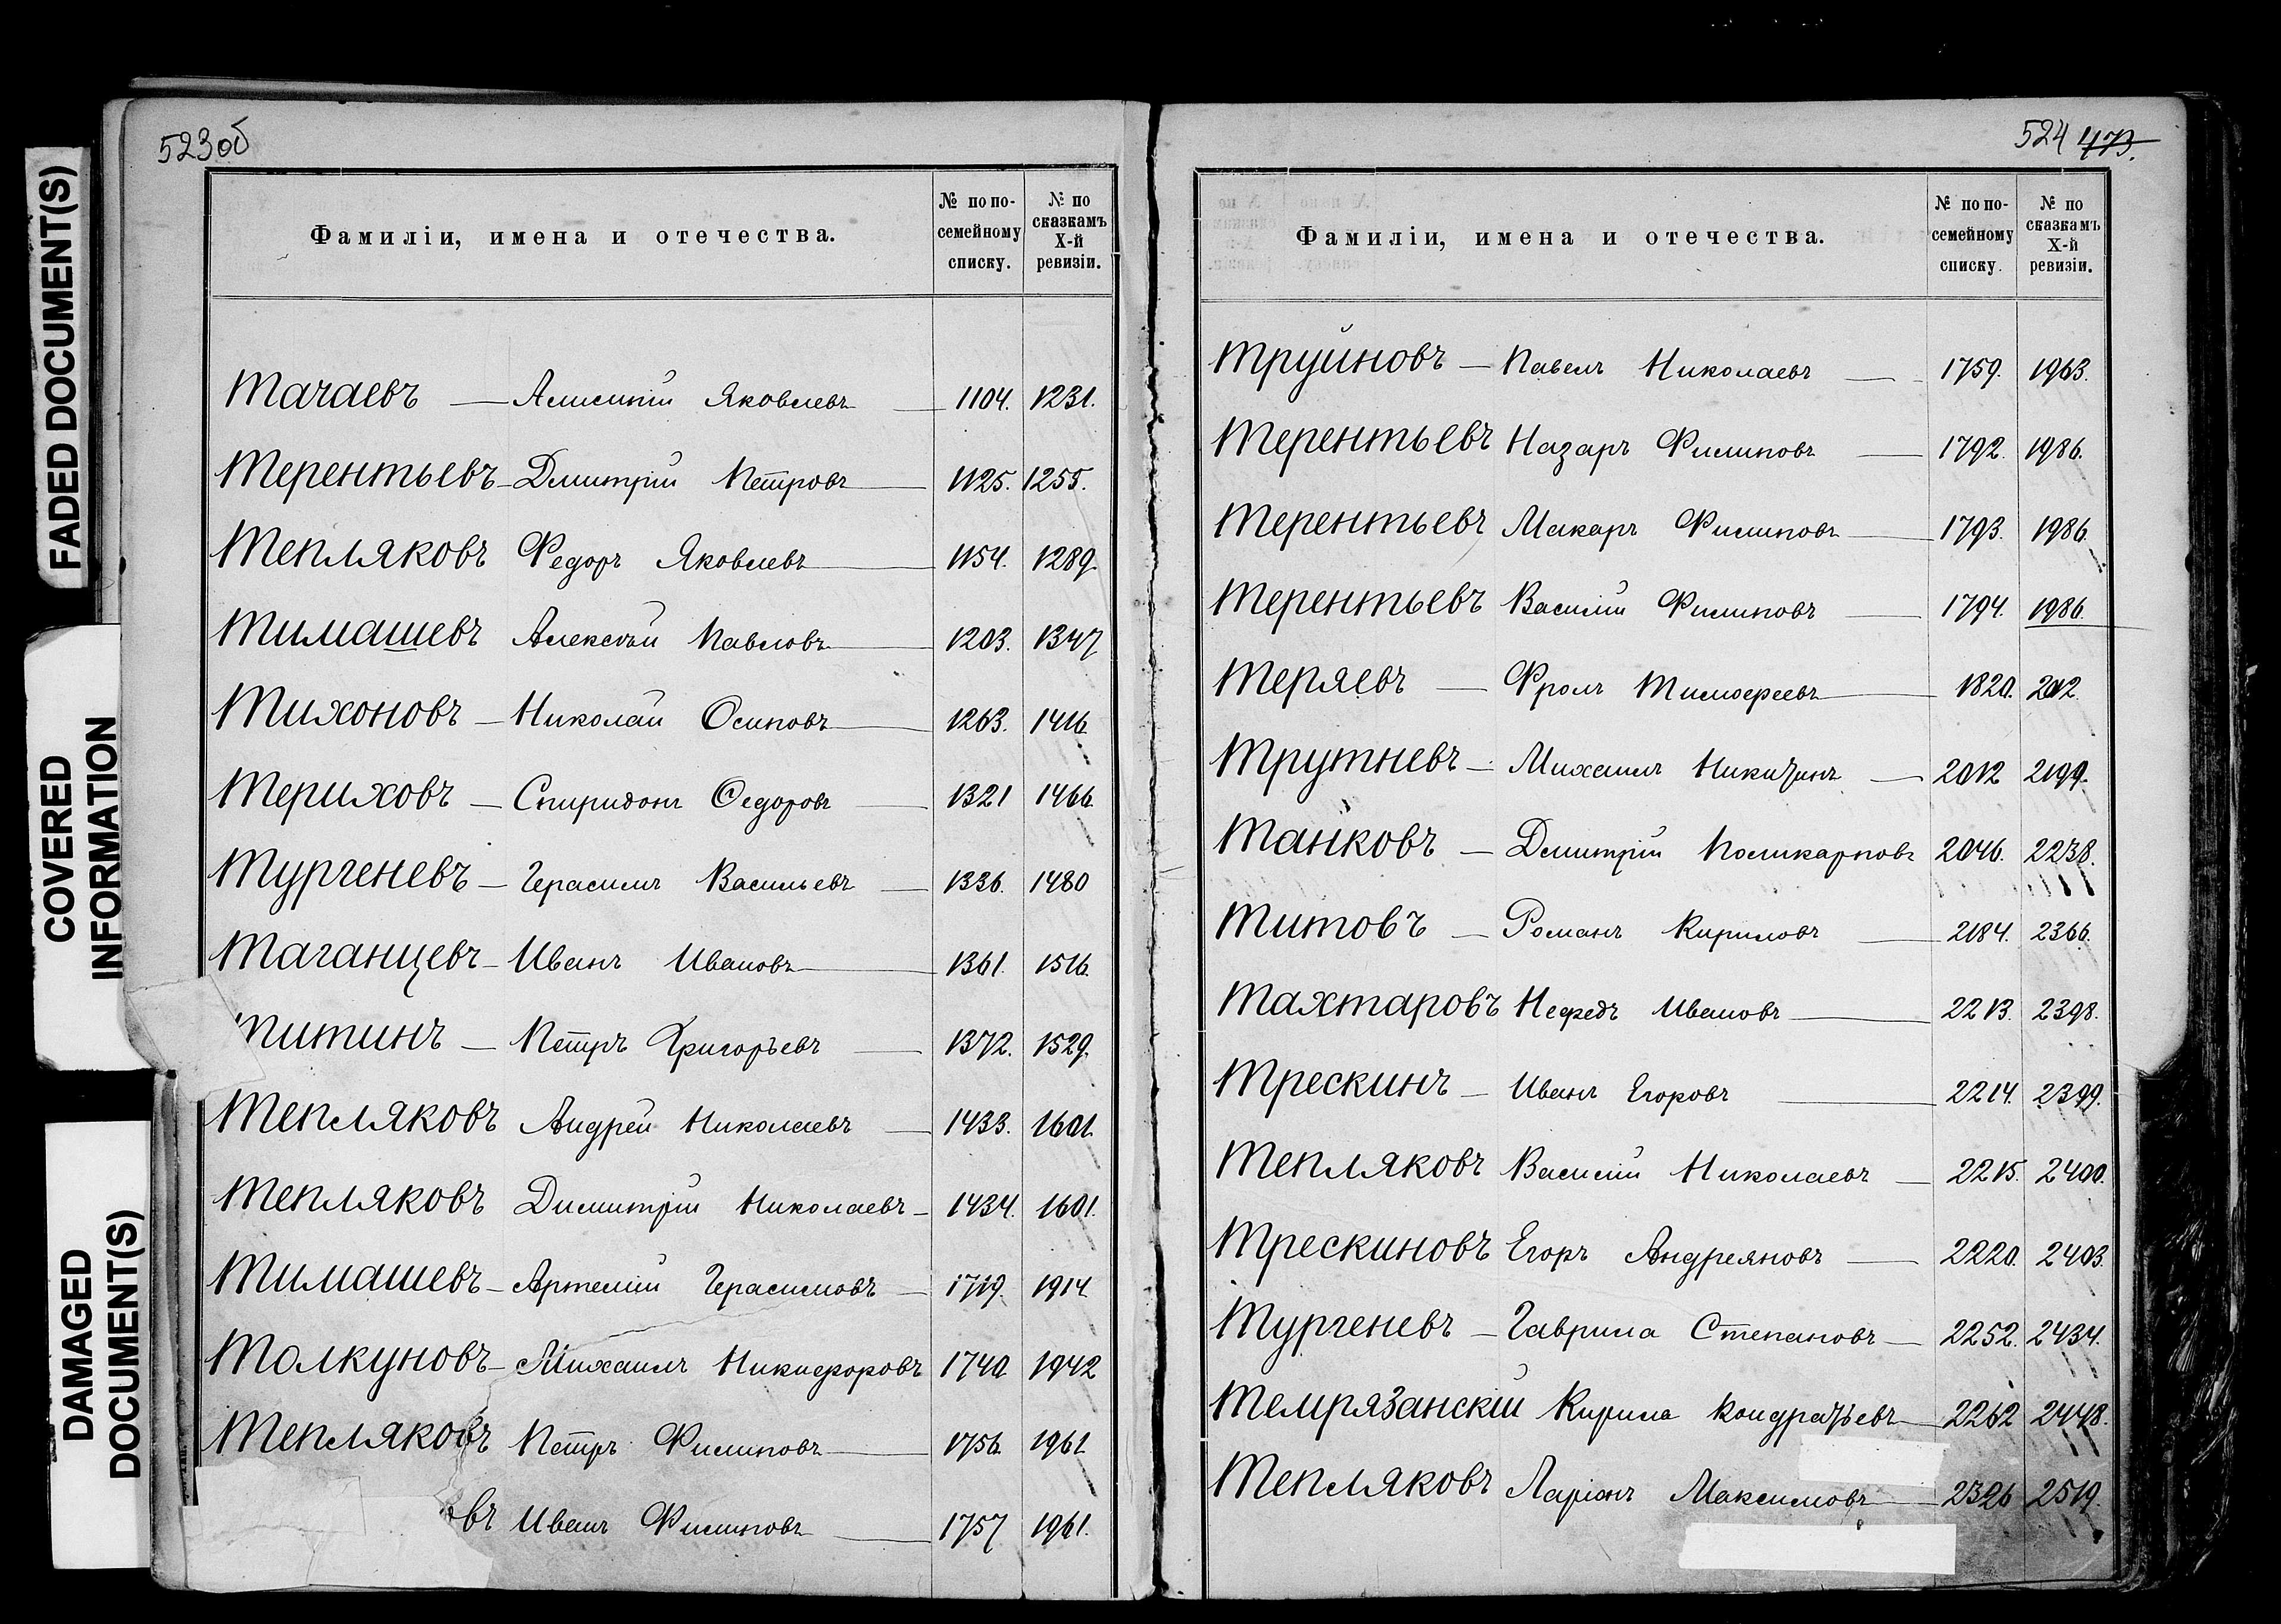 FADED DOCUMENT(S)
COVERED
INFORMATION
DAMAGED
DOCUMENT(S)
523об
Фамиліи, имена и отечества.
№ по по-
семейному
списку.
№ по
сказкамъ
X-й
ревизіи.
Тачаевъ — Алисинтій Яковлевъ — 1104. 1231.
Терентьевъ – Дмитрій Петровъ — 1125. 1255.
Тепляковъ Федоръ Яковлевъ — 1154. 1289.
Тимашевъ Алексѣй Павловъ — 1203. 1347
Тихоновъ — Николай Осиповъ — 1263. 1416.
Териховъ — Спиридонъ Федоровъ — 1321 1466.
Тургеневъ — Герасимъ Васильевъ — 1336. 1480
Таганцевъ – Иванъ Ивановъ — 1361. 1516.
Титинъ — Петръ Григорьевъ — 1372. 1529.
Тепляковъ Андрей Николаевъ — 1433. 1601.
Тепляковъ Димитрій Николаевъ – 1434. 1601.
Тимашевъ – Артемій Герасимовъ — 1719. 1914.
Толкуновъ – Михаилъ Никифоровъ 1740 1942
Тепляковъ Петръ Филиповъ — 1756. 1961.
овъ Иванъ Филиповъ — 1757 1961.
524 473.
Фамиліи, имена и отечества.
№ по по-
семейному
списку.
№ по
сказкамъ
X-й
ревизіи.
Труйновъ — Павелъ Николаевъ — 1759. 1963.
Терентьевъ Назаръ Филиповъ — 1792. 1986.
Терентьевъ Макаръ Филиповъ — 1793. 1986.
Терентьевъ Василій Филиповъ — 1794. 1986.
Теряевъ — Фролъ Тимофеевъ — 1820. 2012.
Трутневъ — Михаилъ Никитинъ — 2012 2199.
Танковъ — Дмитрій Поликарповъ 2046. 2238.
Титовъ — Романъ Кириловъ — 2184. 2366.
Тахтаровъ Нефедъ Ивановъ — 2213. 2398.
Трескинъ — Иванъ Егоровъ — 2214. 2399.
Тепляковъ Василій Николаевъ — 2215. 2400.
Трескиновъ Егоръ Андреяновъ — 2220. 2403.
Тургеневъ — Гаврила Степановъ — 2252. 2434.
Темрязанскій Кирила Кондратьевъ — 2262 2448.
Тепляковъ Ларіонъ Максимовъ — 2326 2519.